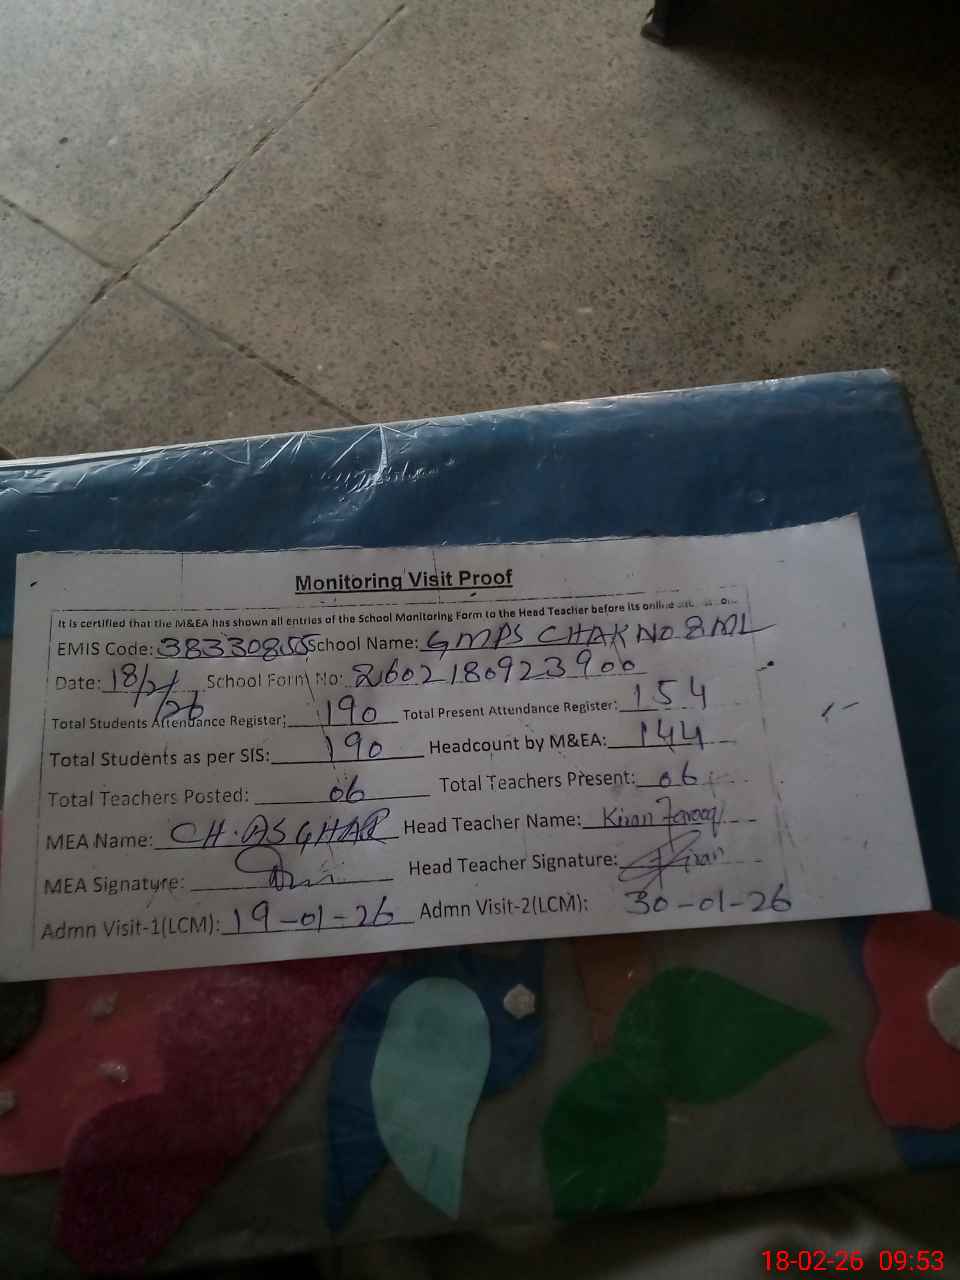 Monitoring Visit Proof
It is certified that the M&EA has shown all entries of the School Monitoring Form to the Head Teacher before its online
EMIS Code: 38330855 School Name: GMPS CHAK NO 8 ML
Date: 18/2/26 School Form No: 2602180923900
Total Students Attendance Register: 190 Total Present Attendance Register: 154
Total Students as per SIS: 190 Headcount by M&EA: 144
Total Teachers Posted: 06 Total Teachers Present: 06
MEA Name: CH. ASGHAR Head Teacher Name: Kiran Farooq
MEA Signature: Head Teacher Signature: Kiran
Admn Visit-1(LCM): 19-01-26 Admn Visit-2(LCM): 30-01-26
18-02-26 09:53